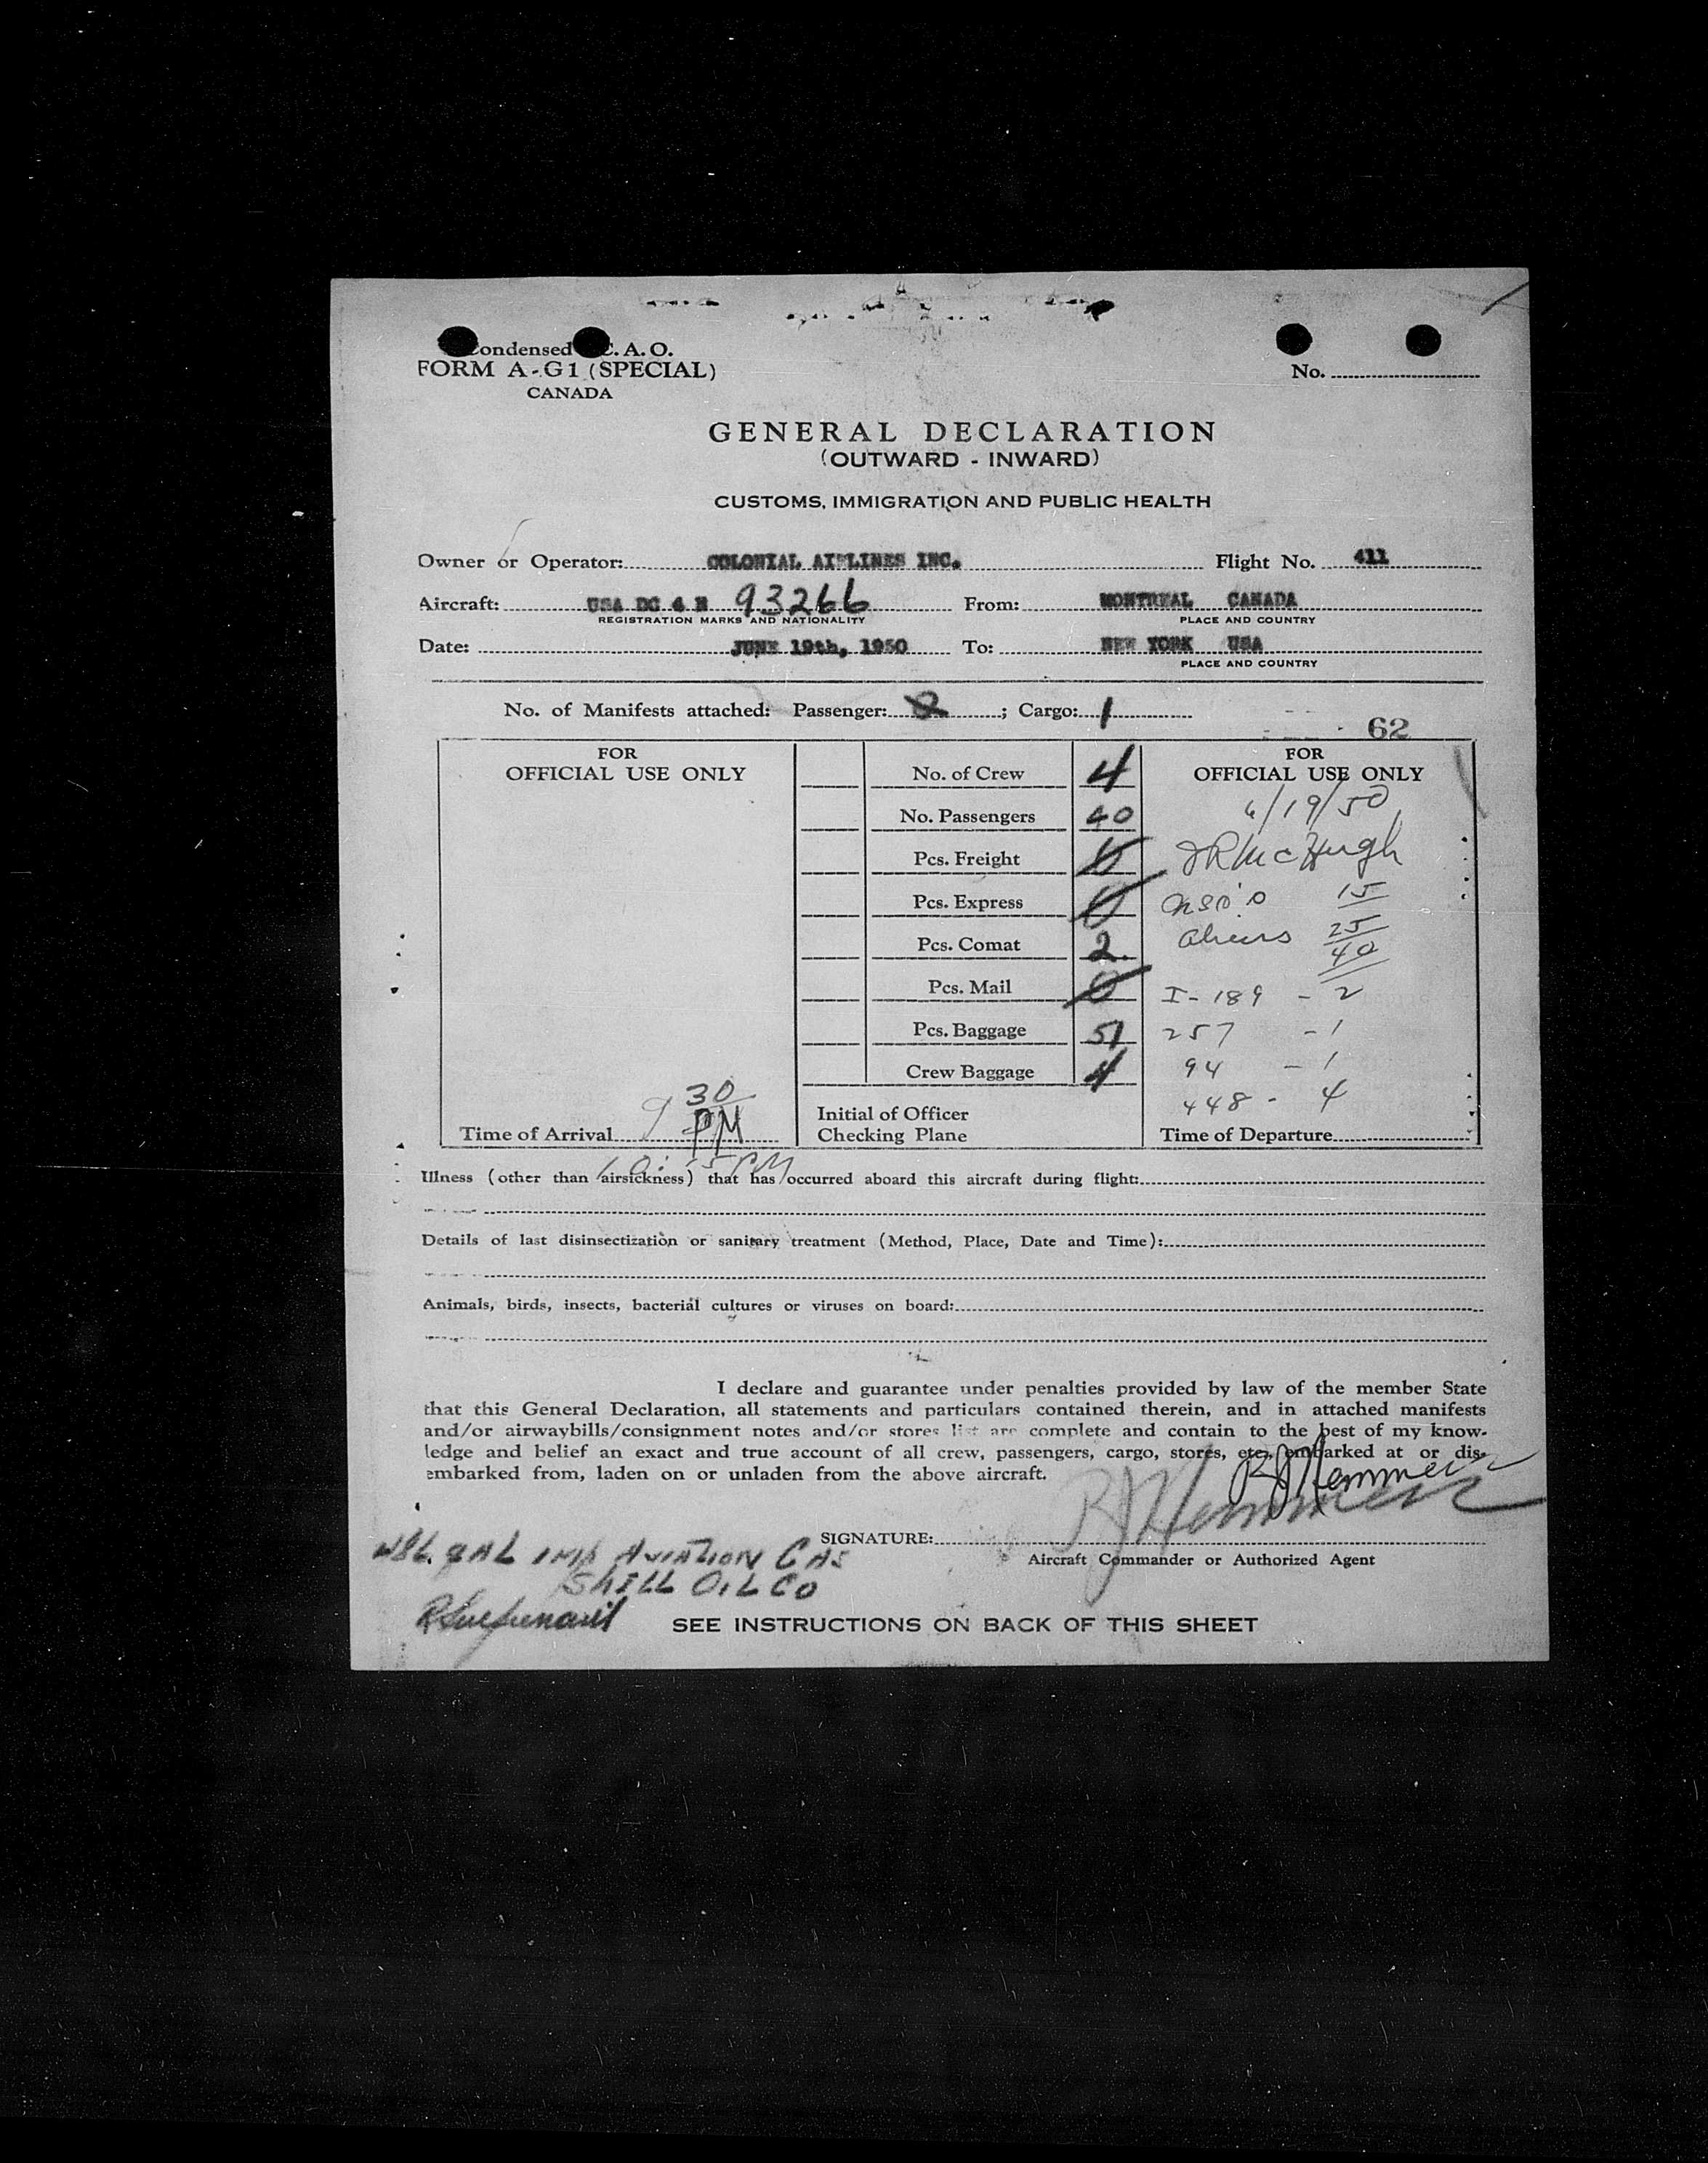 Condensed I.C.A.O.
FORM A-G1 (SPECIAL)
CANADA
No.
GENERAL DECLARATION
(OUTWARD - INWARD)
CUSTOMS, IMMIGRATION AND PUBLIC HEALTH
Owner or Operator: COLONIAL AIRLINES INC. Flight No. 411
Aircraft: USA DC 4 N 93266 From: MONTREAL CANADA
REGISTRATION MARKS AND NATIONALITY PLACE AND COUNTRY
Date: JUNE 19th, 1950 To: NEW YORK USA
PLACE AND COUNTRY
No. of Manifests attached: Passenger: ; Cargo: 1
62
FOR OFFICIAL USE ONLY
Time of Arrival 9 30 PM
No. of Crew 4
No. Passengers 40
Pcs. Freight 0
Pcs. Express 0
Pcs. Comat 2
Pcs. Mail 0
Pcs. Baggage 51
Crew Baggage 4
Initial of Officer
Checking Plane
FOR OFFICIAL USE ONLY
6/19/50
JR McHugh
15
aliens 25
40
I-189 - 2
257 - 1
94 - 1
448 - 4
Time of Departure
PM
Illness (other than airsickness) that has occurred aboard this aircraft during flight:
Details of last disinsectization or sanitary treatment (Method, Place, Date and Time):
Animals, birds, insects, bacterial cultures or viruses on board:
I declare and guarantee under penalties provided by law of the member State
that this General Declaration, all statements and particulars contained therein, and in attached manifests
and/or airwaybills/consignment notes and/or stores list are complete and contain to the best of my know-
ledge and belief an exact and true account of all crew, passengers, cargo, stores, etc., embarked at or dis-
embarked from, laden on or unladen from the above aircraft.
SIGNATURE:
Aircraft Commander or Authorized Agent
GAL AVIATION GAS
SHELL OIL CO
SEE INSTRUCTIONS ON BACK OF THIS SHEET